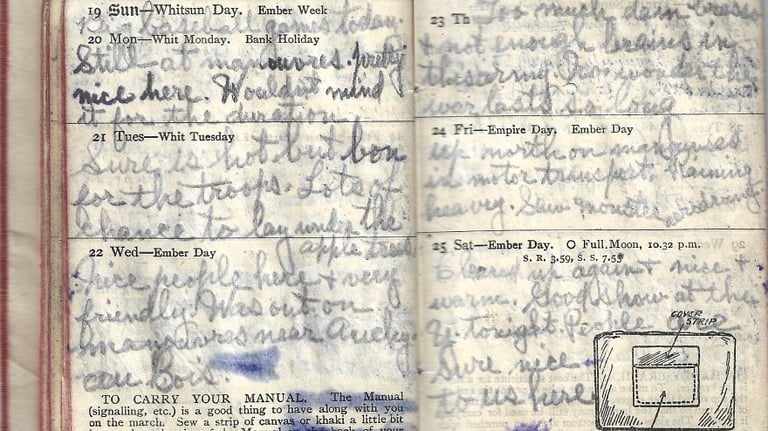 19 Sun—Whitsun Day. Ember Week
games today.
20 Mon—Whit Monday. Bank Holiday
Still at manouvres. pretty
nice here. Wouldn't mind
it for the duration
21 Tues—Whit Tuesday
Sure is hot but bon
for the troops. Lots of
chance to lay under the
apple trees
22 Wed—Ember Day
Nice people here & very
friendly. Was out on
manouvres near Auchy-
au Bois.
TO CARRY YOUR MANUAL. The Manual
(signalling, etc.) is a good thing to have along with you
on the march. Sew a strip of canvas or khaki a little bit
23 Th
Too much darn brass
& not enough brains in
this army. I wonder the
war lasts so long
24 Fri—Empire Day. Ember Day
up north on
in motor transport. Raining
heavy. Saw
25 Sat—Ember Day. O Full Moon, 10.32 p.m.
S. R. 3.59, S. S. 7.55
Cleared up again & nice &
warm. Good show at the
Y tonight. People are
sure nice
to us here
COVER
STRIP